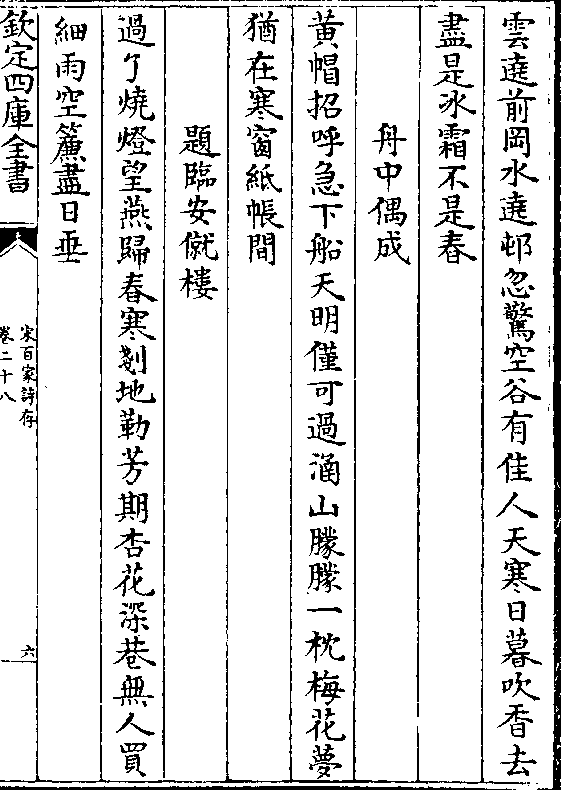 雲遶前岡水遶邨忽驚空谷有佳人天寒日暮吹香去
盡是冰霜不是春
舟中偶成
黃帽招呼急下船天明僅可過涵山朦朦一枕梅花夢
猶在寒窗紙帳間
題臨安僦樓
過了燒燈望燕歸春寒剗地勒芳期杏花深巷無人買
細雨空簾盡日垂
欽定四庫全書
宋百家詩存
卷二十八
六